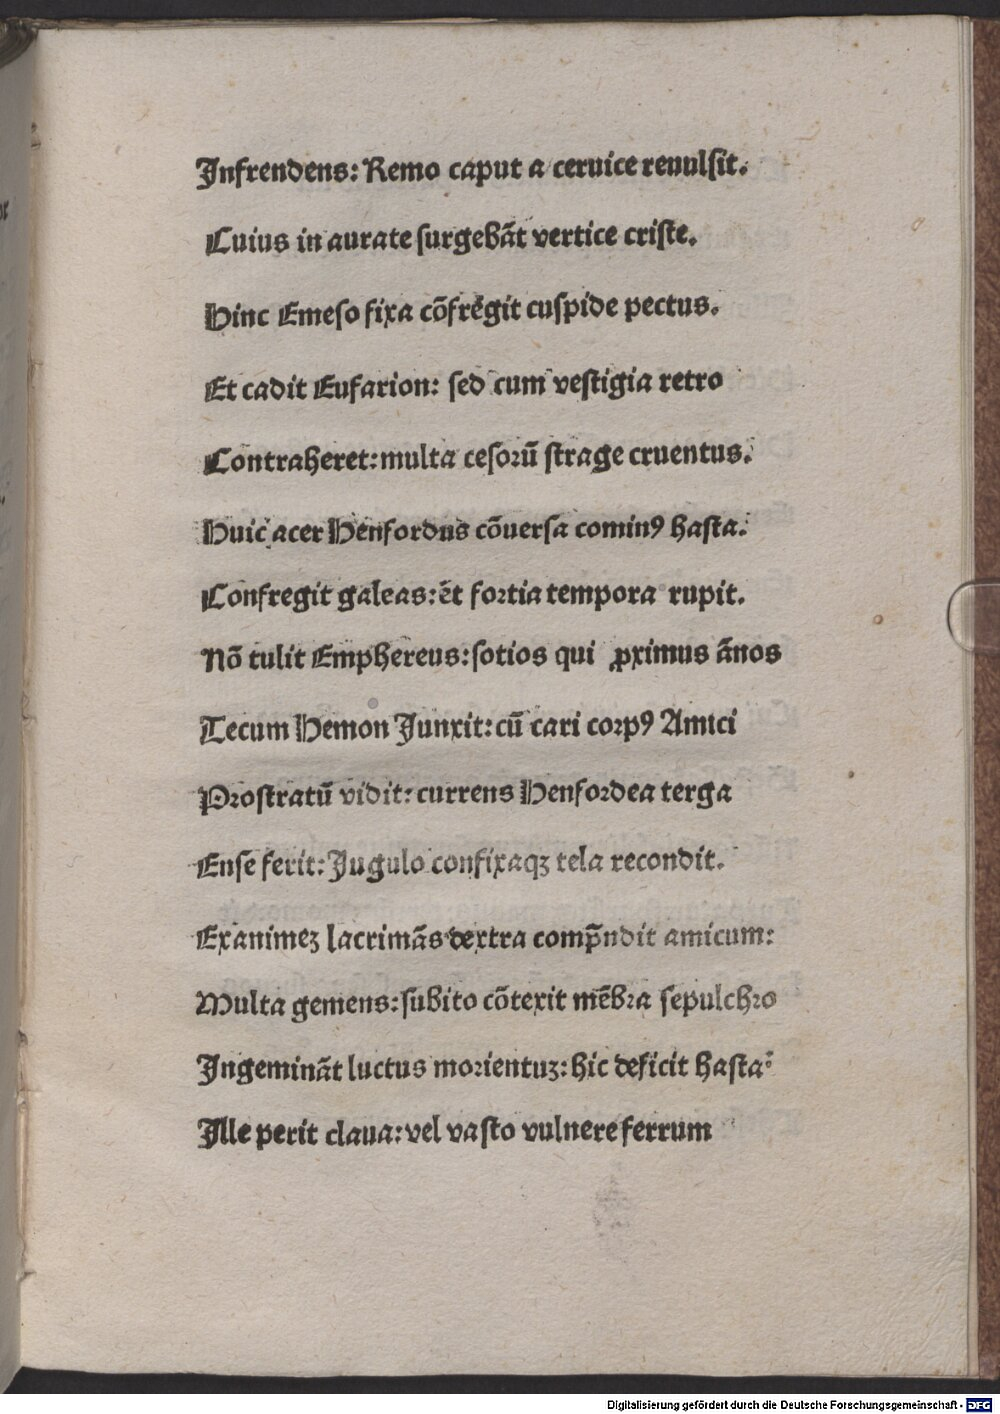 Infrendens: Remo caput a ceruice reuulſit.
Cuius in aurate ſurgebãt vertice criſte.
Hinc Emeſo fixa cõfrẽgit cuſpide pectus.
Et cadit Eufarion: ſed cum veſtigia retro
Contraheret: multa ceſoꝛũ ſtrage cruentus.
Huic acer Henfordus cõuerſa comin⁹ haſta.
Confregit galeas: ẽt foꝛtia tempora rupit.
Nõ tulit Emphereus: ſotios qui ꝓximus ãnos
Tecum Hemon Junxit: cũ cari coꝛp⁹ Amici
Pꝛoſtratũ vidit: currens Henfoꝛdea terga
Enſe ferit: Jugulo confixaqꝫ tela recondit.
Exanimeꝫ lacrimãs dextra comp̃ndit amicum:
Multa gemens: ſubito cõtexit mẽbꝛa ſepulchꝛo
Ingeminãt luctus moꝛientuꝫ: hic deficit haſta:
Ille perit claua: vel vaſto vulnere ferrum
Digitalisierung gefördert durch die Deutsche Forschungsgemeinschaft - DFG